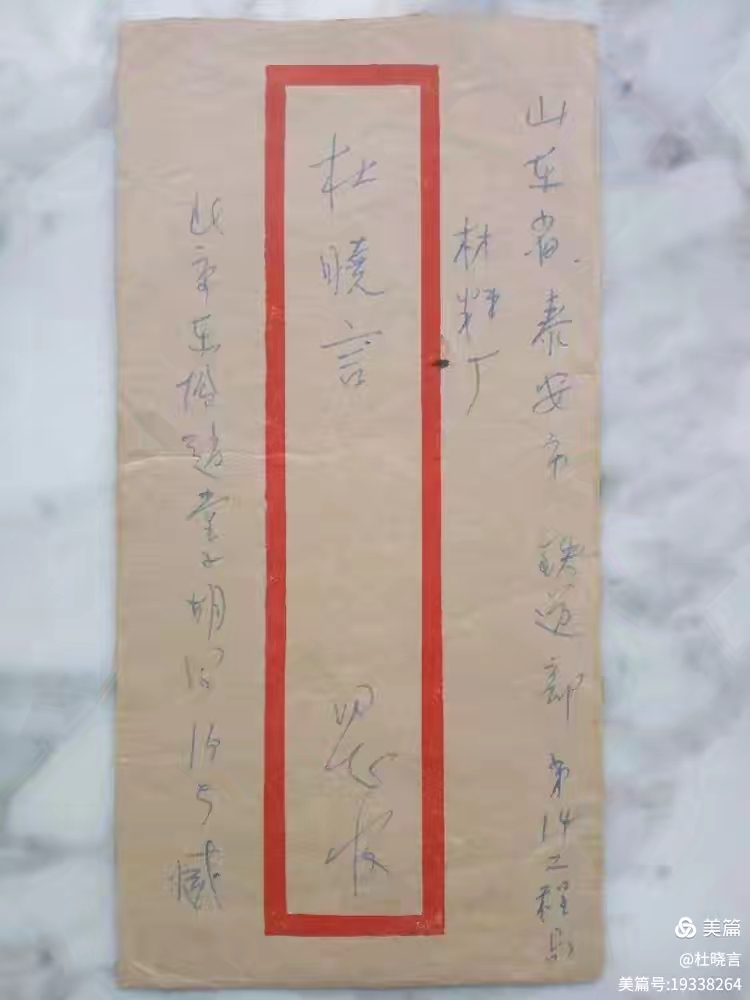 山东省泰安市铁道部第14工程局
材料厂
杜曉言 同志收
北京东城赵堂子胡同15号臧
美篇
@杜晓言
美篇号:19338264